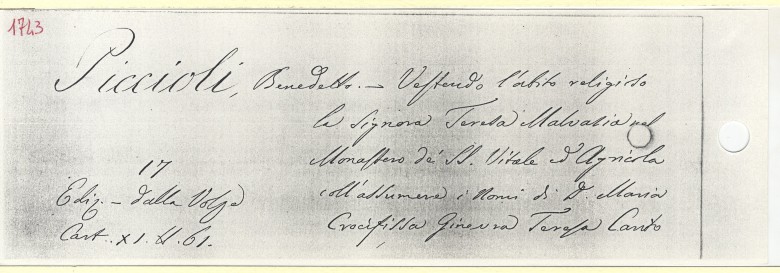 1743
Piccioli, Benedetto. — Vestendo l'abito religioso
la Signora Teresa Malvasia nel
Monastero de' SS. Vitale ed Agricola
coll'assumere i nomi di D. Maria
Crocifissa Ginevra Teresa Canto
17
Ediz. — dalla Volpe
Cart. XI. N. 61.